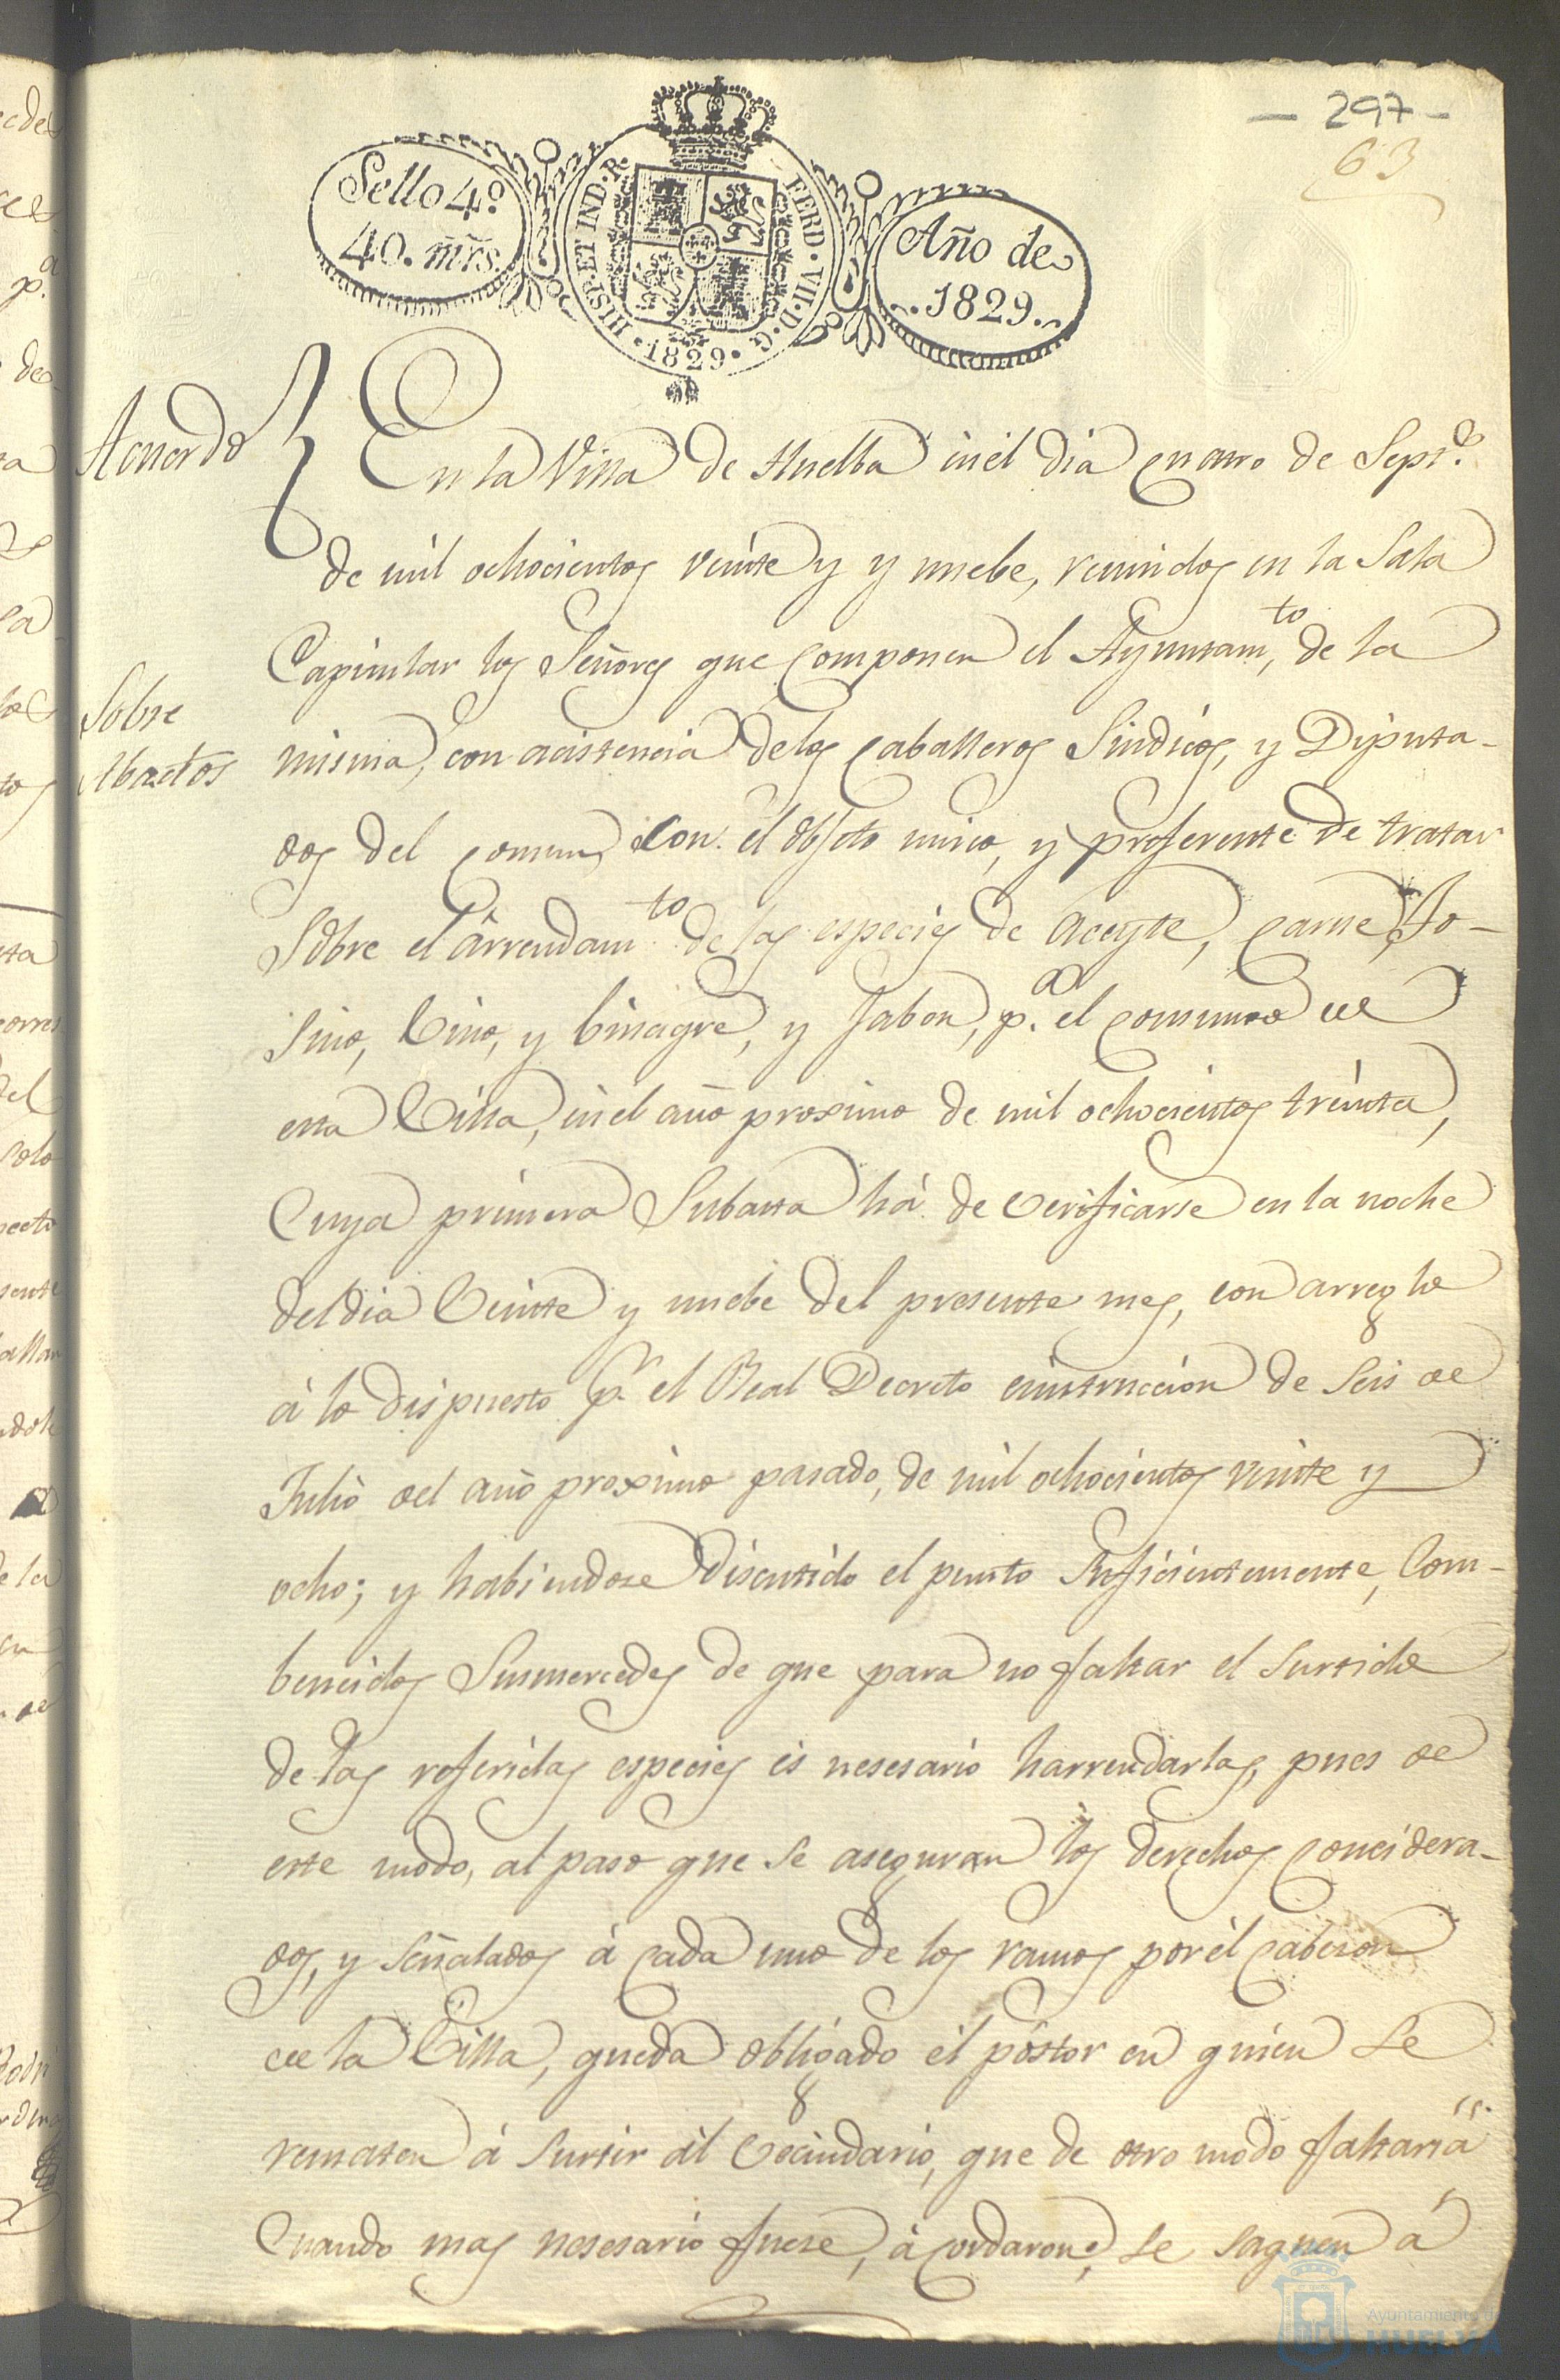 - 297 -
63
Sello 4º.
40. mrs.
HISP. ET IND. R.
FERD. VII. D. G.
1829
Año de
1829.
Acuerdo
En la Villa de Huelba en el dia cuatro de Sept.e
de mil ochocientos veinte y y nuebe, reunidos en la Sala
Capitular los Señores que componen el Ayuntam.to, de la
Sobre
Abastos
misma, con acistencia de los Caballeros Sindicos, y Diputa-
dos del comun, con el objeto unico, y preferente de tratar
Sobre el arrendam.to de las especies de Aceyte, Carne, To-
sino, Vino, y binagre, y Jabon, p.a el comun de
esta Villa, en el año proximo de mil ochocientos treinta,
Cuya primera Subasta há de verificarse en la noche
del dia Veinte y nuebe del presente mes, con arreglo
á lo dispuesto p.r el Real Decreto é instruccion de Seis de
Julio del año proximo pasado, de mil ochocientos veinte y
ocho; y habiendose Discutido el punto Suficientemente, Com-
bencidos Susmercedes de que para no faltar el Surtido
de las referidas especies es nesesario harrendarlas, pues de
este modo, al paso que se aseguran los derechos concidera-
dos, y señalados á cada uno de los ramos por él Cabeson
de la Villa, queda obligado él postor en quien se
rematen á Surtir ál Vecindario, que de otro modo faltaria
Cuando mas nesesario fuese, ácordaron, se saquen á
Ayuntamiento de
HUELVA